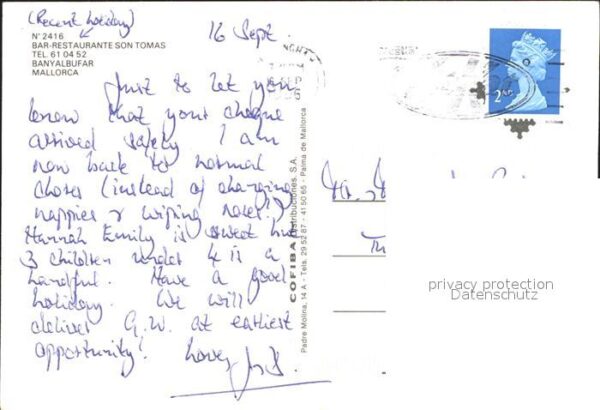 (Recent holiday)
16 Sept.
Nº 2416
BAR-RESTAURANTE SON TOMAS
TEL. 61 04 52
BANYALBUFAR
MALLORCA
Just to let you
know that your cheque
arrived safely I am
now back to normal
chores (instead of changing
nappies & wiping noses!)
Hannah Emily is sweet but
3 children under 4 is a
handful. Have a good
holiday. We will
deliver G.W. at earliest
opportunity!
Love,
COFIBA Distribuciones, S.A.
Padre Molina, 14 A - Tels. 29 52 87 - 41 50 65 - Palma de Mallorca
2ND
privacy protection
Datenschutz